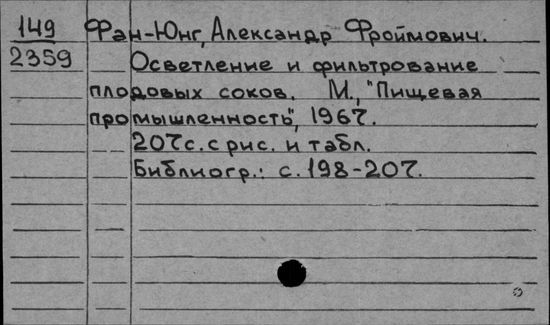 149 Фан-Юнг, Александр Фроймович.
2359 Осветление и фильтрование
плодовых соков. М., "Пищевая
промышленность", 1967.
207с. с рис. и табл.
Библиогр.: с. 198-207.